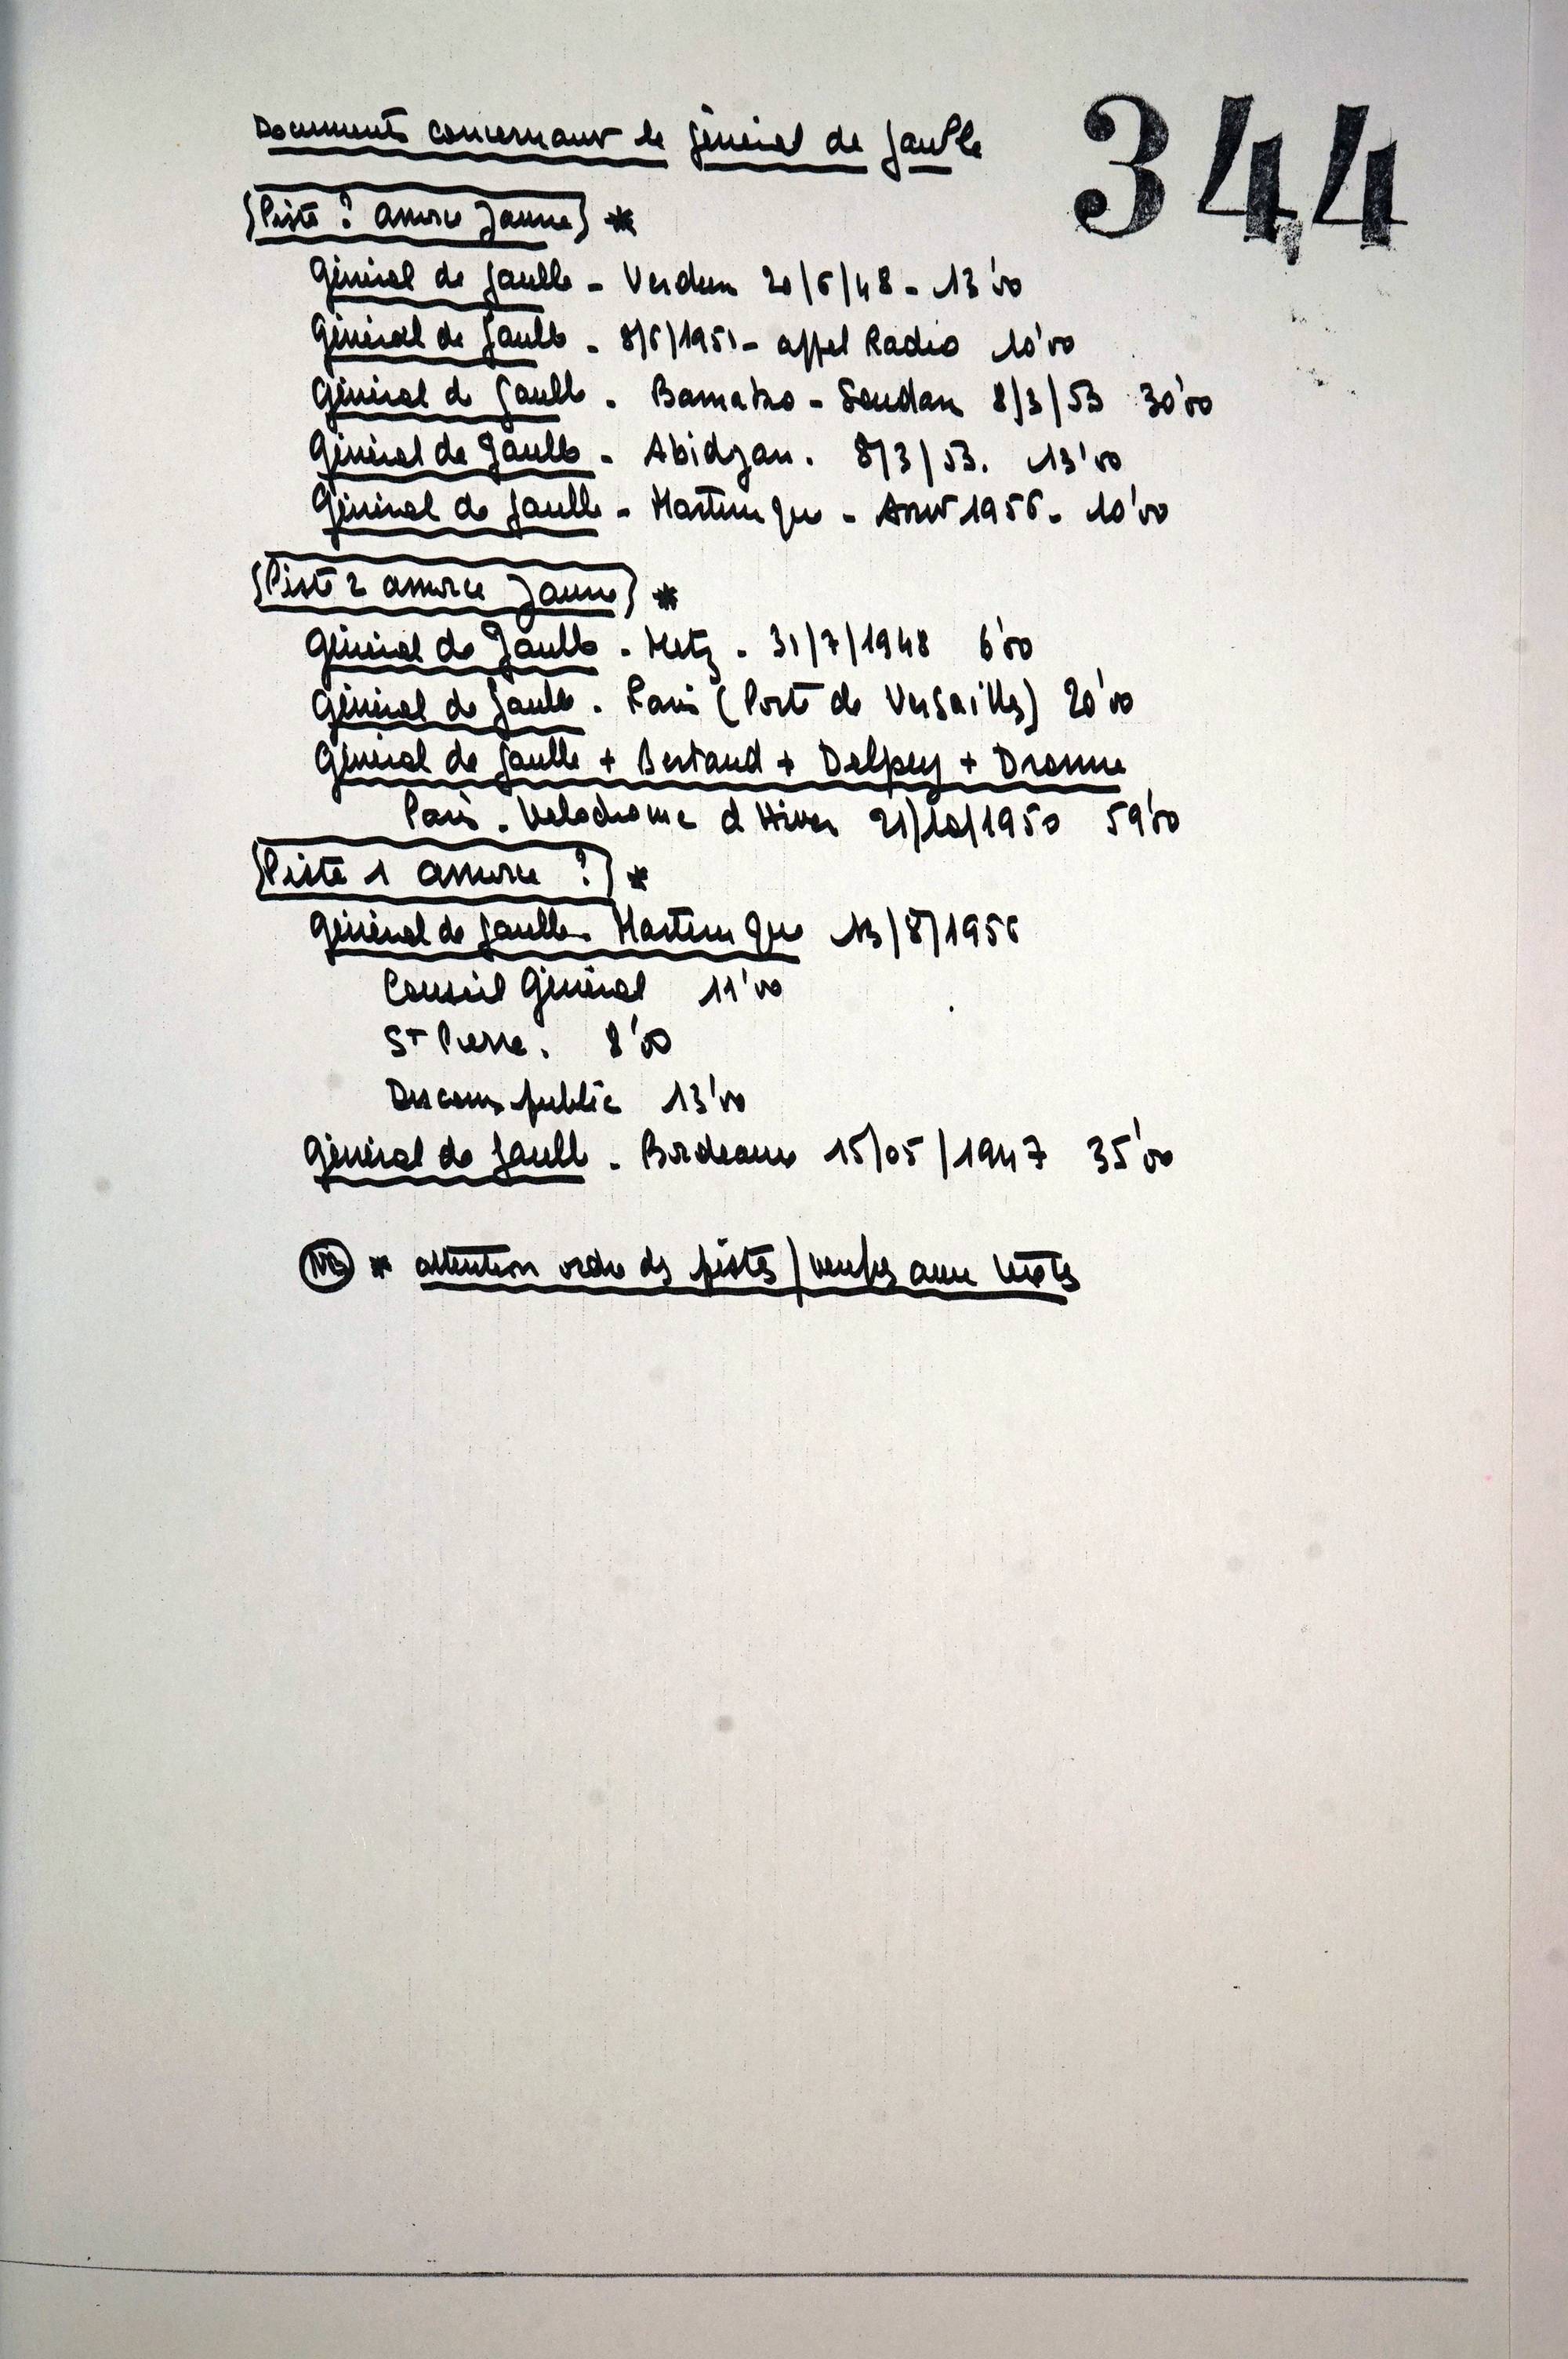 Documents concernant le Général de Gaulle
344
Piste ? amorce Jaune *
Général de Gaulle - Verdun 20/6/48 - 13'00
Général de Gaulle - 8/6/1951 - appel Radio 10'00
Général de Gaulle - Bamako - Soudan 8/3/53 30'00
Général de Gaulle - Abidjan. 8/3/53. 13'00
Général de Gaulle - Martinique - Aout 1956 - 10'00
Piste 2 amorce Jaune *
Général de Gaulle - Metz - 31/7/1948 6'00
Général de Gaulle - Paris (Porte de Versailles) 20'00
Général de Gaulle + Bertaud + Delpey + Dronne
Paris - Velodrome d'Hiver 21/10/1950 59'00
Piste 1 amorce ? *
Général de Gaulle - Martinique 13/8/1956
Conseil Général 11'00
St Pierre. 8'00
Discours public 13'00
Général de Gaulle - Bordeaux 15/05/1947 35'00
NB * attention ordre des pistes /